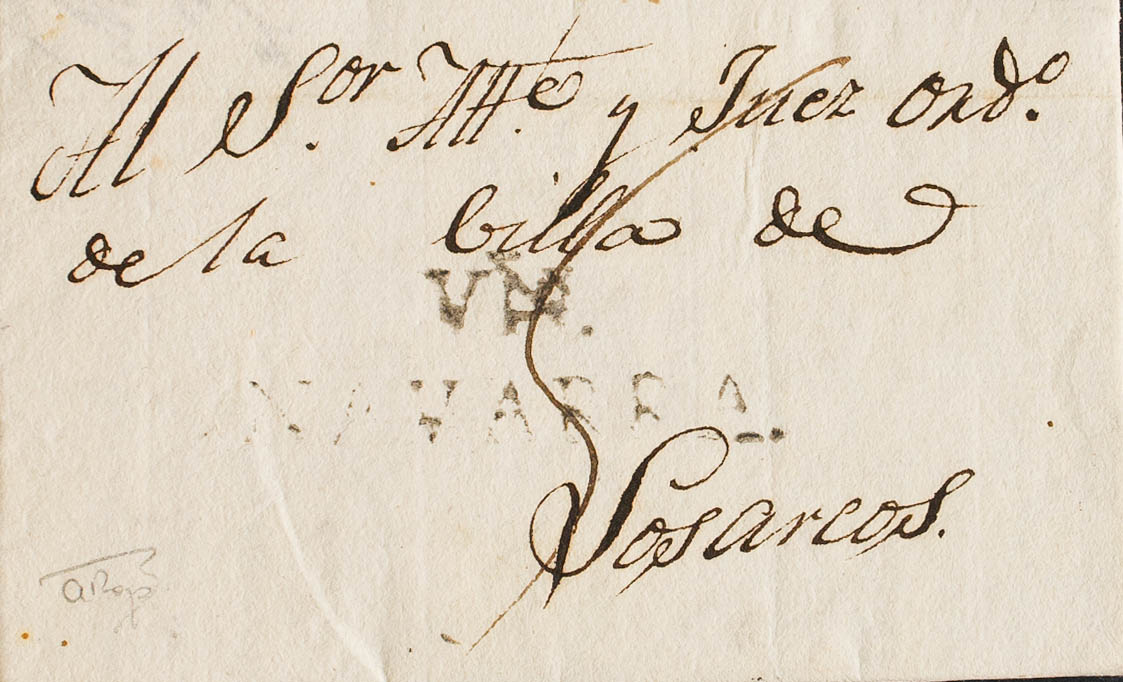 Al S.or Alte. y Juez ord.o
de la billa de
NAVARRA.
Losarcos.